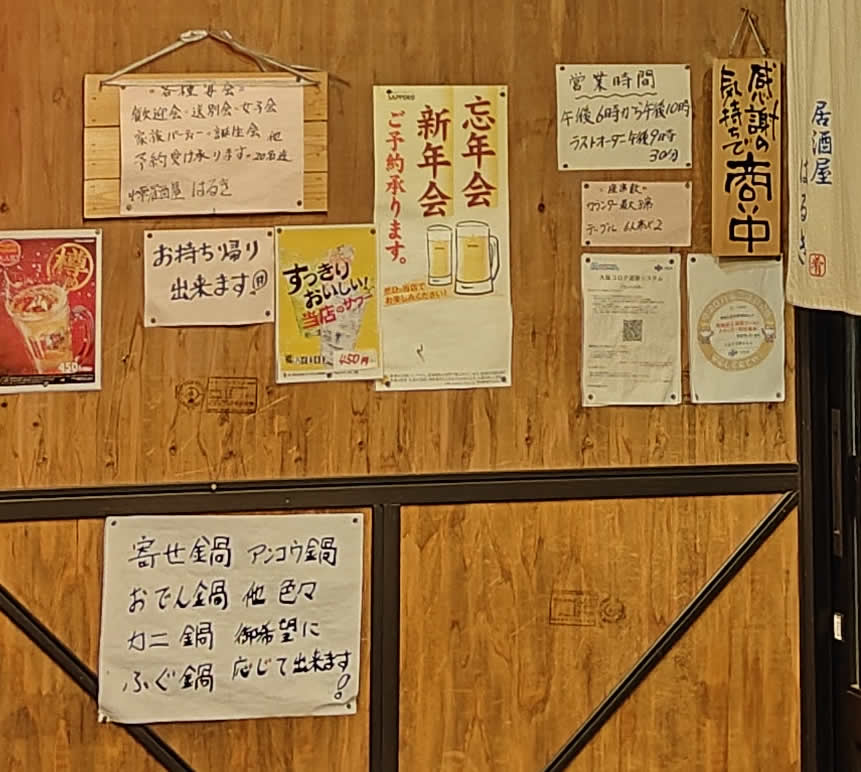 各種宴会
歓迎会・送別会・女子会
家族パーティー・誕生会 他
予約受け承ります。20名迄
居酒屋 はるき
お持ち帰り
出来ます
すっきり
おいしい!
当店のサワー
450円
450
樽
SAPPORO
忘年会
新年会
ご予約承ります。
ぜひ、当店で
お楽しみください!
営業時間
午後6時から午後10時
ラストオーダー午後9時
30分
座席数
カウンター最大3席
テーブル 6人席×2
大阪コロナ追跡システム
感謝の
気持ちで
商い中
居酒屋
はるき
寄せ鍋 アンコウ鍋
おでん鍋 他 色々
カニ鍋 御希望に
ふぐ鍋 応じて出来ます!